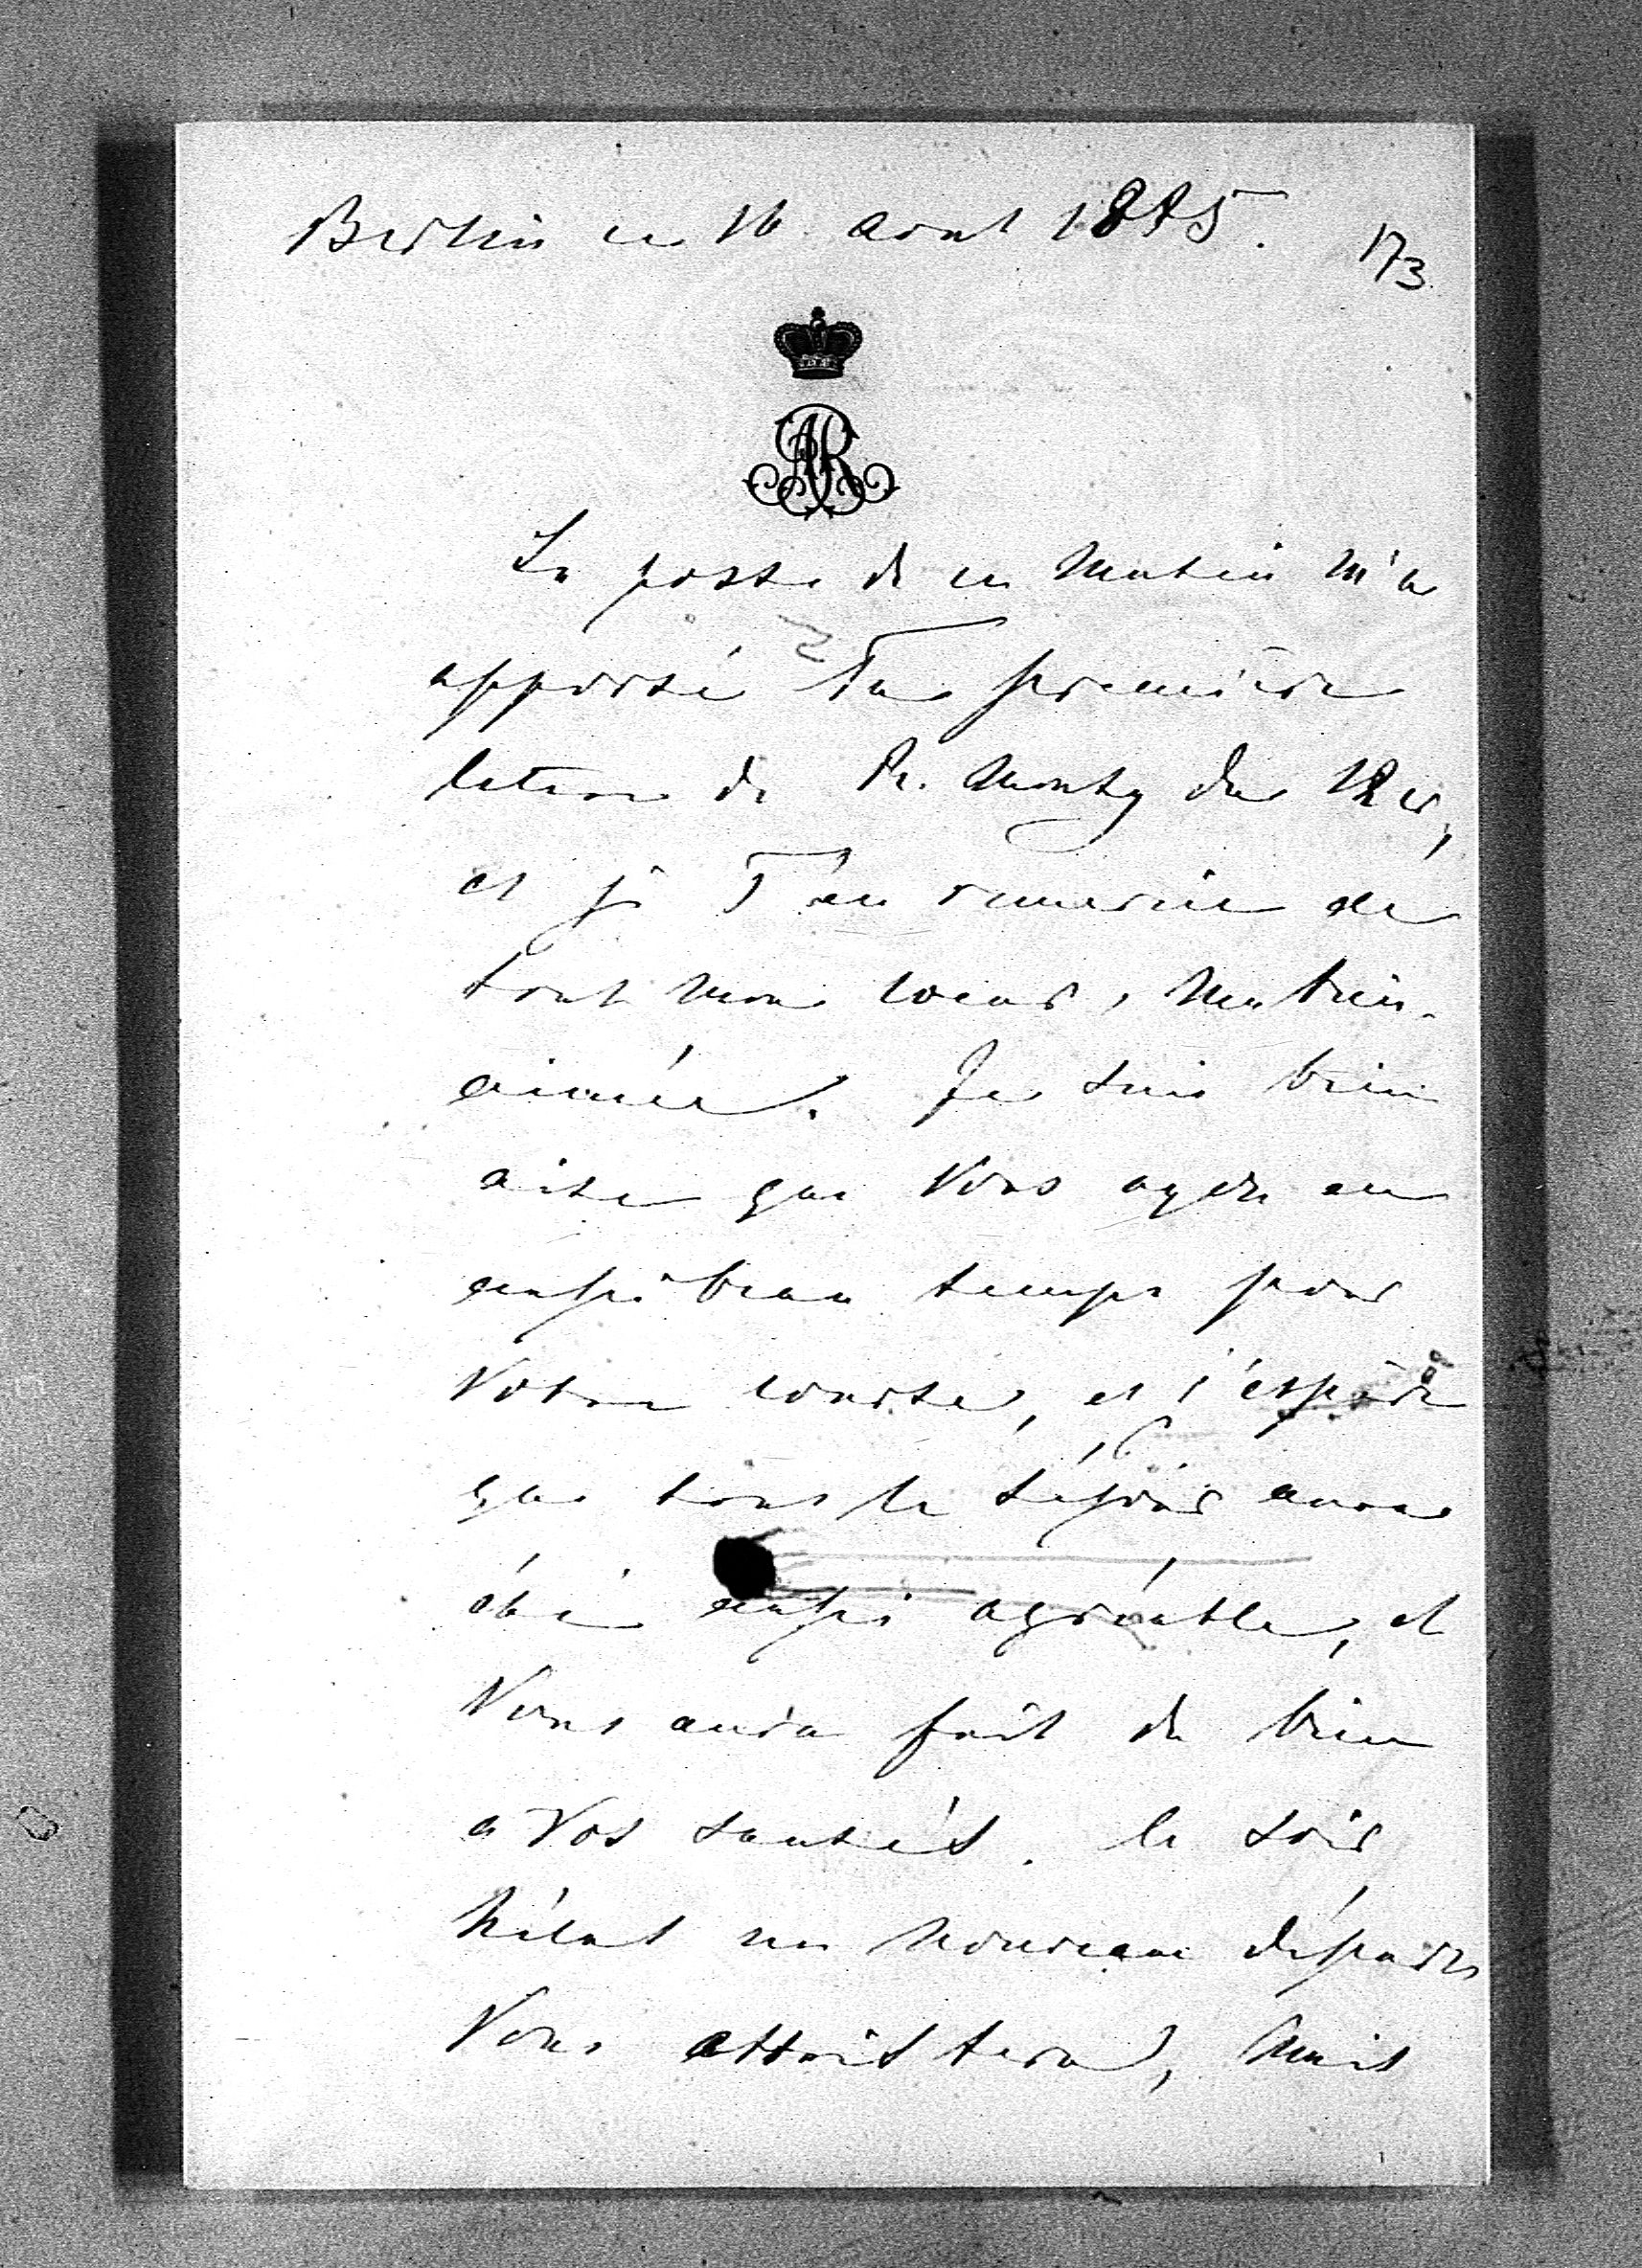 Berlin ce 16 aout 1885.
173
AR
La poste de ce matin m'a
apporté Ta première
lettre de R. Monty du 12 cr,
et je T'en remercie de
tout mon coeur, ma bien-
aimée. Je suis bien
aise que Vous ayez eu
aussi beau temps pour
Votre course, et j'espère
que tout le séjour aura
été aussi agréable, et
Vous aura fait du bien
a Vos santés. Ce soir
hélas un nouveau départ
Vous attristera, mais